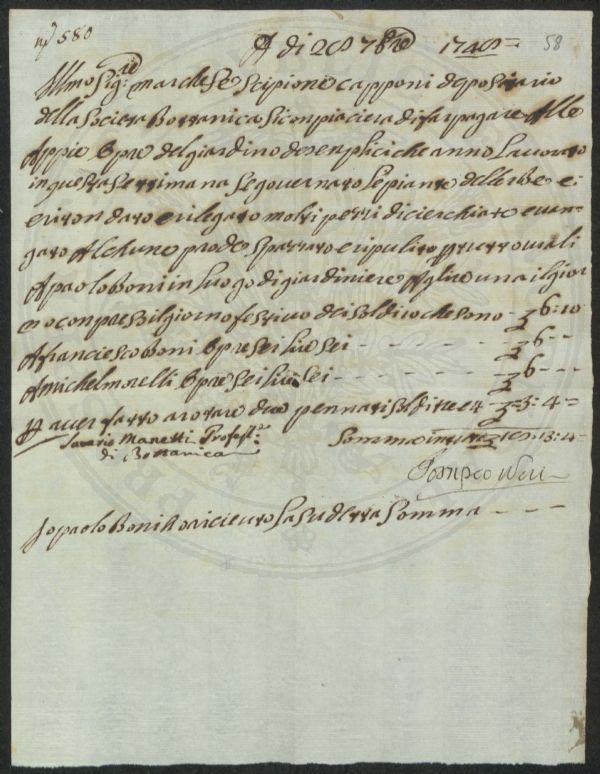 n° 580
A di 28 7bre 1748 = 58
Illmo Sigre marchese Scipione capponi depositario
della Società Bottanica Si conpiacierà di far pagare Alle
Appie Opre del giardino de senplici che anno Lavorato
in questa settimana Se governato Le piante dell erbe e i
e rilegato molti pezzi di cierchiate e van-
gato Alchune prode Spazzato e ripulito per tutto
A paolo Boni in Luogo di giardiniere una il gior
no con pre Il giorno festivo dei Soldi 10 che Sono - £ 6 : 10
A franciesco Boni Opre Sei Lire Sei - - - - - - £ 6 - -
A michel morelli Opre Sei Lire Sei - - - - - - £ 6 - - -
P aver fatto arotare due pennati Soldi tre e 4 - = 3 : 4 =
Saverio Manetti Profess.e Somma in tutto £ 18 : 13 : 4 =
di Bottanica
Pompeo Neri
Io paolo Boni ho ricieuto La Sudetta Somma - - - -